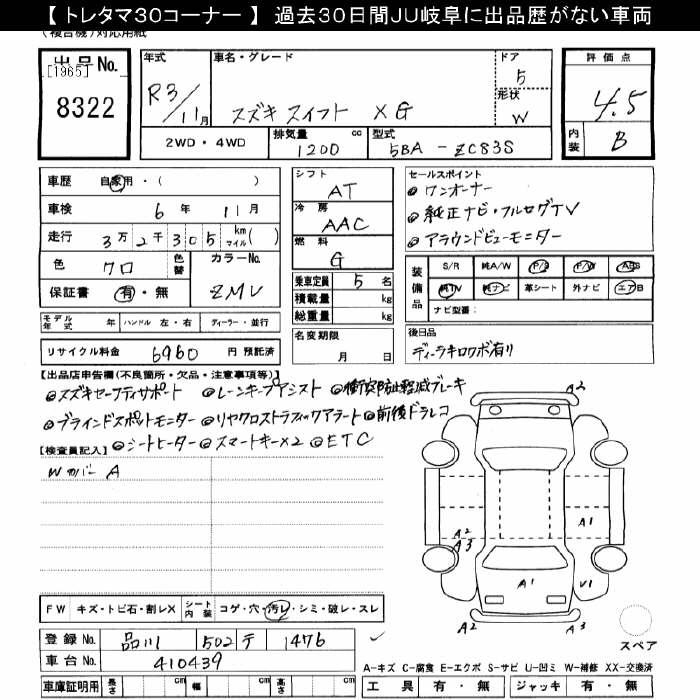 【 トレタマ30コーナー 】 過去30日間JU岐阜に出品歴がない車両
(複合機)対応用紙
出品No.
[1965]
8322
年式
R3/11月
車名・グレード
スズキ スイフト XG
ドア
5
形状
W
評価点
4.5
内装
B
2WD・4WD
排気量 cc
1200
型式
5BA-ZC83S
車歴 自家用・( )
車検 6年 11月
走行 3万2千305 km マイル( )
色 クロ 色替
カラーNo. ZMV
保証書 有・無
モデル年式 年 ハンドル 左・右 ディーラー・並行
リサイクル料金 6960 円 預託済
シフト
AT
冷房
AAC
燃料
G
乗車定員 5 名
積載量 kg
総重量 kg
名変期限
月 日
セールスポイント
◎ワンオーナー
◎純正ナビ・フルセグTV
◎アラウンドビューモニター
装備品
S/R 純A/W P/S P/W ABS
純TV 純ナビ 革シート 外ナビ エアB
ナビ型番:
後日品
ディーラキロクボ有り
【出品店申告欄(不良箇所・欠品・注意事項等)】
◎スズキセーフティサポート ◎レーンキープアシスト ◎衝突防止軽減ブレーキ
◎ブラインドスポットモニター ◎リヤクロストラフィックアラート ◎前後ドラレコ
◎シートヒーター ◎スマートキー×2 ◎ETC
【検査員記入】
Wカバー A
A2
A2
A3
A1
A1
V1
A2
A3
スペア
FW キズ・トビ石・割レX シート内装 コゲ・穴・汚レ・シミ・破レ・スレ
登録No. 品川 502 テ 1476
車台No. 410439
車庫証明用 長さ cm 幅 cm 高さ cm
A-キズ C-腐食 E-エクボ S-サビ U-凹ミ W-補修 XX-交換済
工具 有・無 ジャッキ 有・無